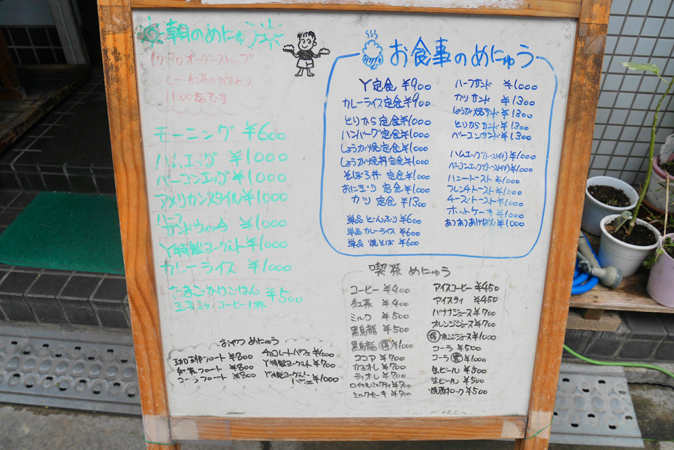 朝のめにゅう
11:00までです
モーニング ¥600
ハムエッグ ¥1000
ベーコンエッグ ¥1000
アメリカンスタイル ¥1000
ハーフ
サンドウィッチ ¥1000
Y特製ヨーグルト ¥1000
カレーライス ¥1000
たまごかけごはん ¥500
おやつめにゅう
コーヒーフロート ¥800
紅茶フロート ¥800
コーラフロート ¥800
チョコレートパフェ ¥1000
Y特製ヨーグルト ¥700
Y特製ヨーグルト
パフェ ¥1000
お食事のめにゅう
Y定食 ¥900
カレーライス定食 ¥900
とりから定食 ¥1000
ハンバーグ定食 ¥1000
しょうが焼定食 ¥1000
しょうが焼丼定食 ¥1000
そぼろ丼 定食 ¥1000
おにぎり 定食 ¥1000
カツ 定食 ¥1300
単品 ¥600
単品 カレーライス ¥600
単品 焼そば ¥600
ハーフサンド ¥1000
カツサンド ¥1300
しょうが焼サンド ¥1300
とりからサンド ¥1300
ベーコンサンド ¥1000
ハムエッグ(トースト) ¥1000
ベーコンエッグ(トースト) ¥1000
ハニートースト ¥1000
フレンチトースト ¥1000
チーズトースト ¥1000
ホットケーキ ¥1000
¥1000
喫茶 めにゅう
コーヒー ¥400
紅茶 ¥400
ミルク ¥400
黒烏龍 ¥500
黒烏龍 ¥1000
ココア ¥700
カフェオレ ¥700
ティオレ ¥700
ロイヤルミルクティ ¥700
ミルクセーキ ¥700
アイスコーヒー ¥450
アイスティ ¥450
バナナジュース ¥700
オレンジジュース ¥500
オレンジジュース ¥1000
コーラ ¥500
コーラ ¥1000
生ビール ¥500
焼酎ロック ¥500